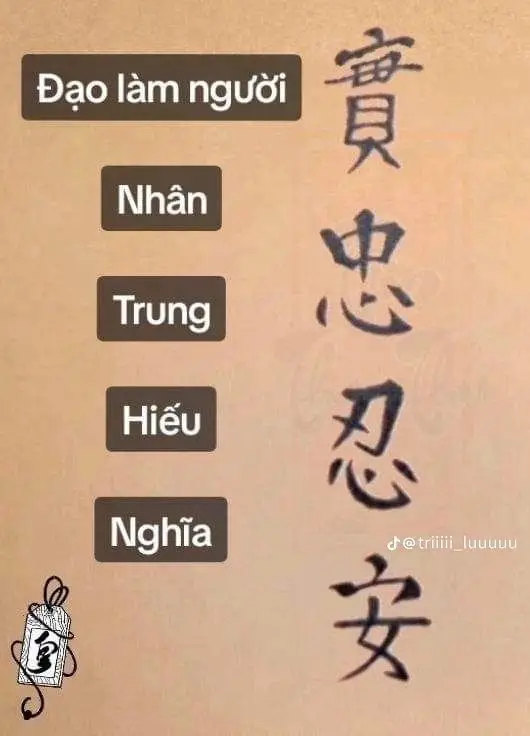 Đạo làm người
Nhân
Trung
Hiếu
Nghĩa
實
忠
忍
安
@triiiii_luuuuu